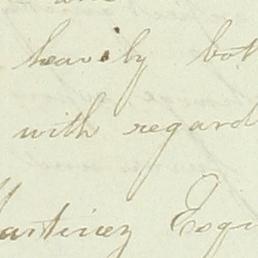 heavily bot
with regard
Martinez Esqu